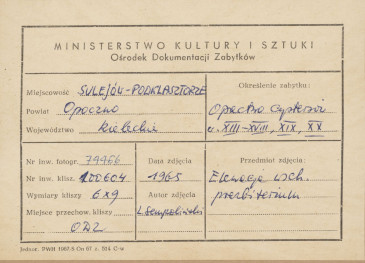 MINISTERSTWO KULTURY I SZTUKI
Ośrodek Dokumentacji Zabytków
Miejscowość SULEJÓW-PODKLASZTORZE
Powiat Opoczno
Województwo kieleckie
Określenie zabytku:
Opactwo cystersów
w. XIII-XVIII, XIX, XX
Nr inw. fotogr. 79466
Nr inw. klisz. 100604
Wymiary kliszy 6x9
Miejsce przechow. kliszy
ODZ
Data zdjęcia
1965
Autor zdjęcia
Przedmiot zdjęcia:
Elewacja wsch.
prezbiterium
Jednor. DWR